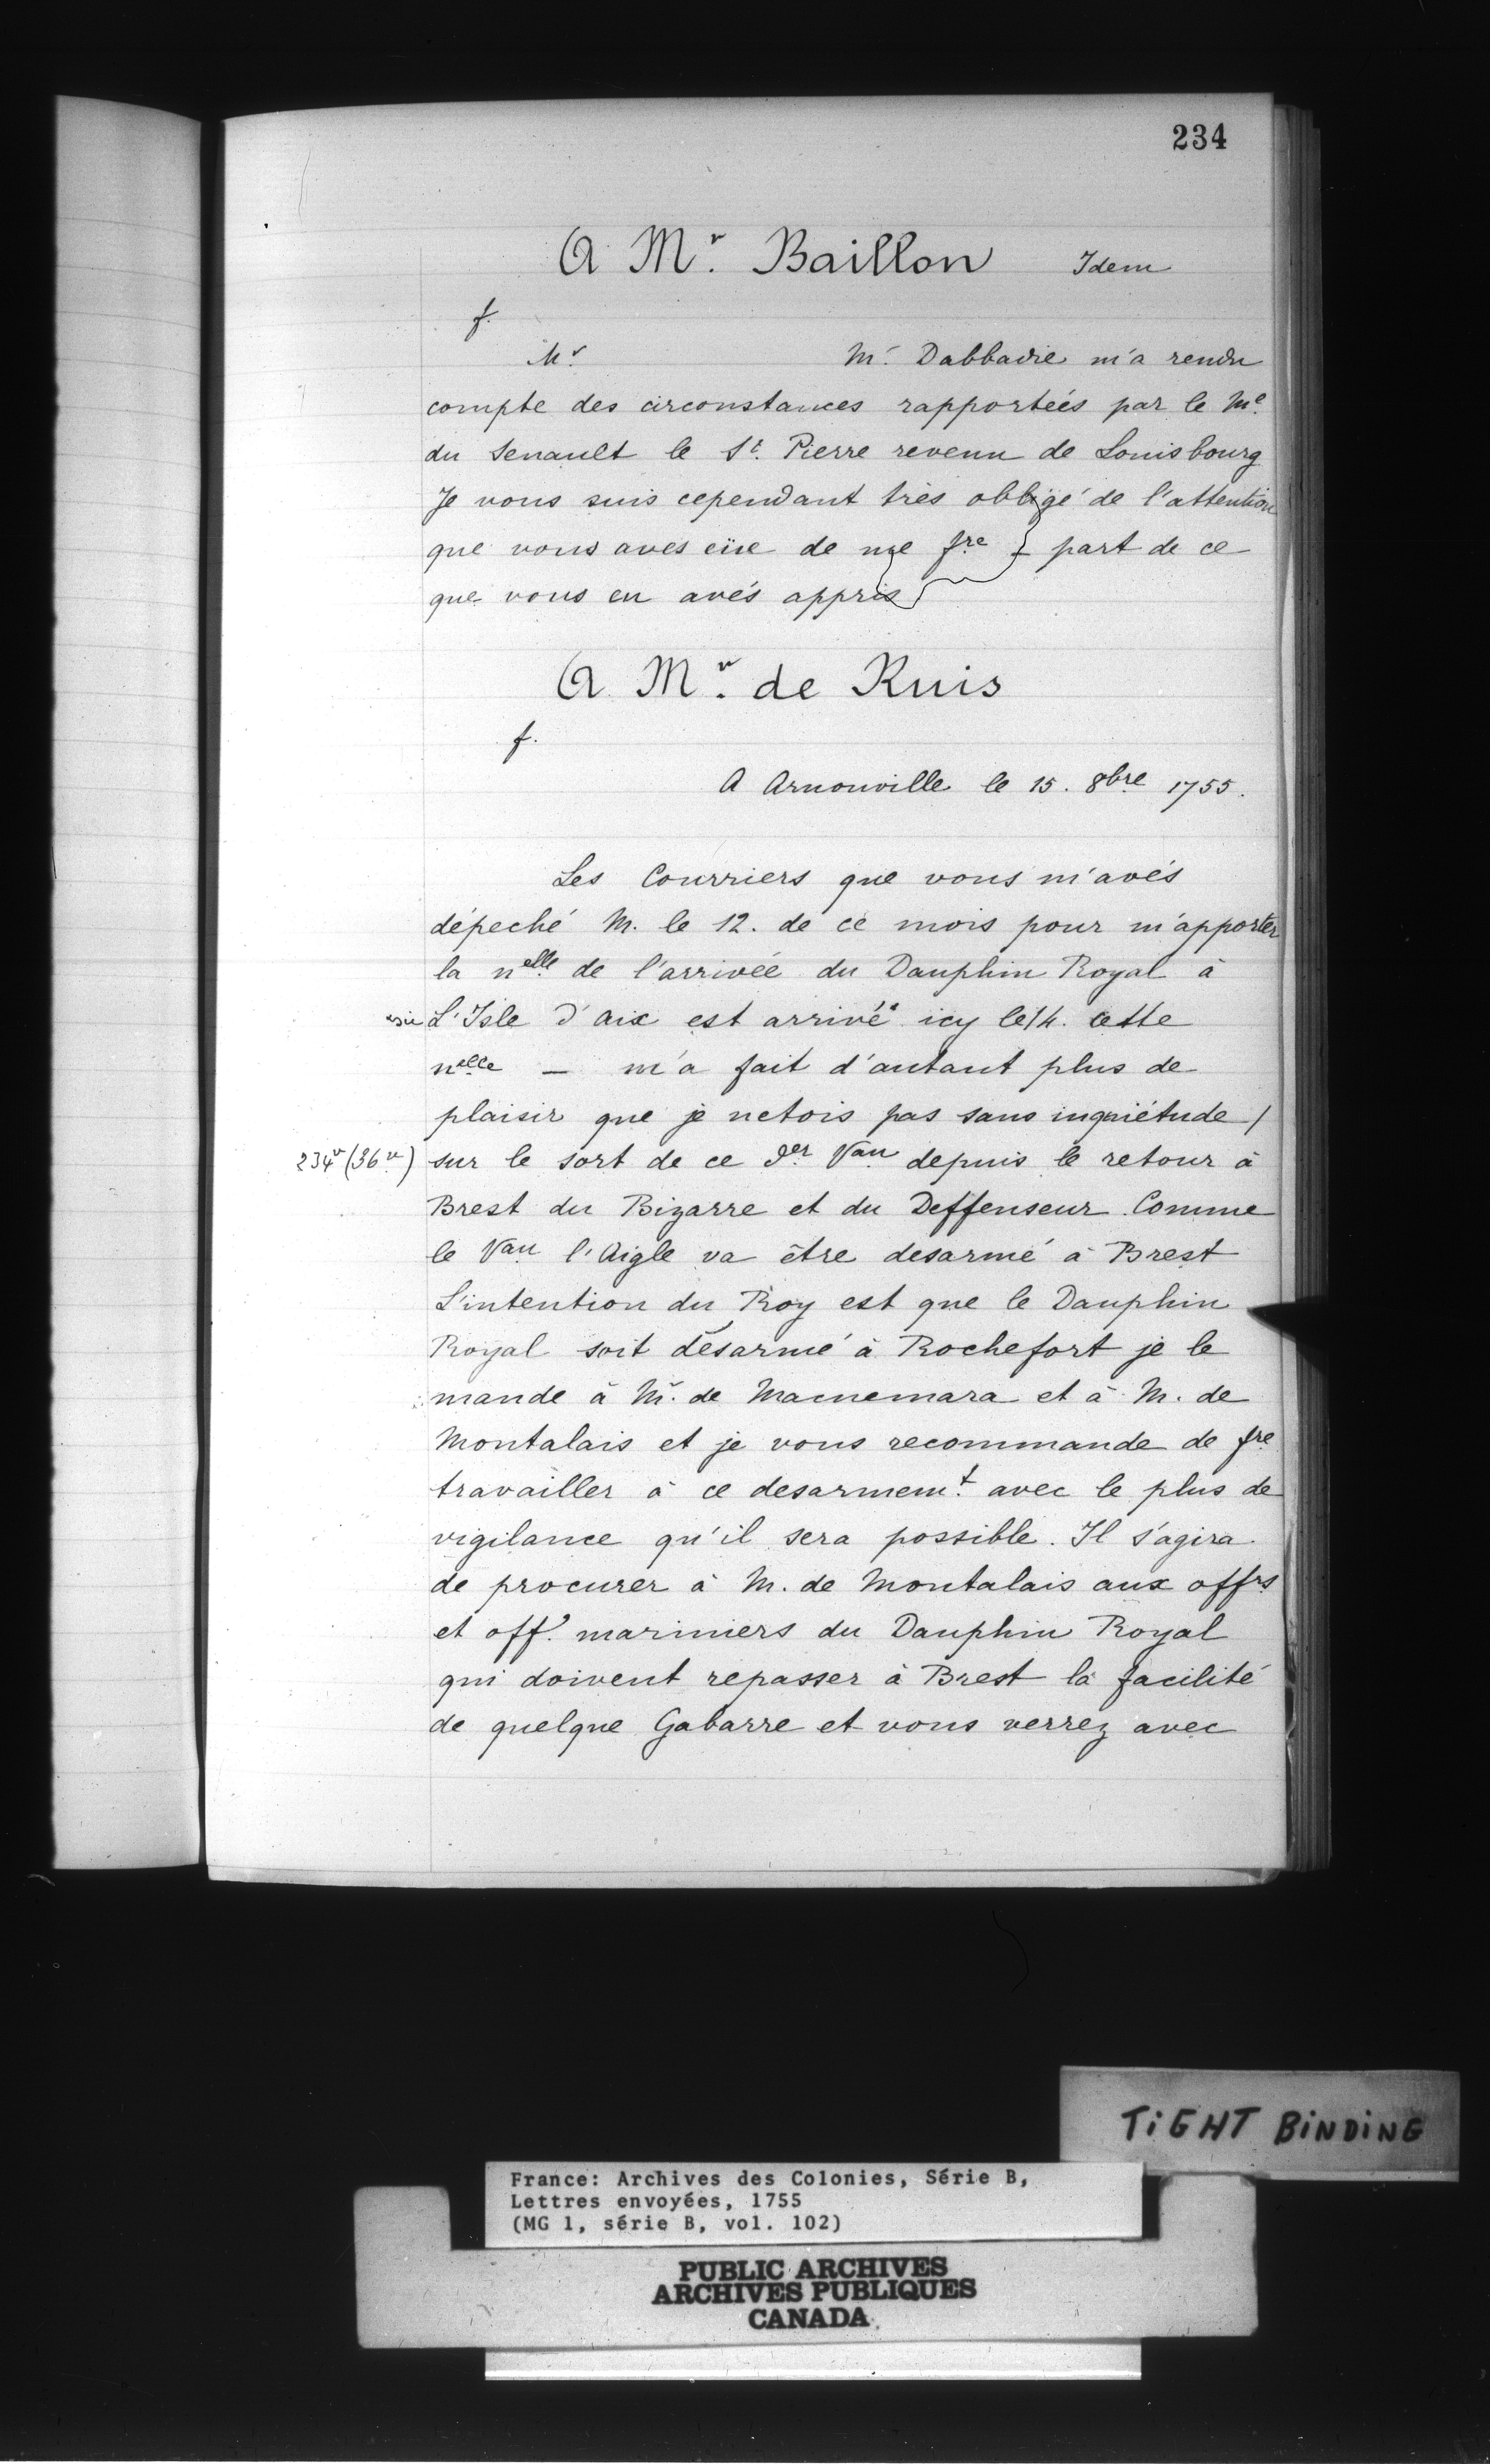 234
A Mr. Baillon Idem
f.
Mr. M. Dabbadie m'a rendu
compte des circonstances rapporteés par le Me.
du Senault le St. Pierre revenu de Louisbourg
Je vous suis cependant très obligé de l'attention
que vous aves eüe de me fre part de ce
que vous en avés appris
A Mr. de Ruis
f.
A Arnouville le 15. 8bre 1755.
Les Courriers que vous m'avés
dépeché M. le 12. de ce mois pour m'apporter
la nelle de l'arrivée du Dauphin Royal à
L'Isle d'aix est arrivé icy le 14. cette
nelle — m'a fait d'autant plus de
plaisir que je netois pas sans inquiétude /
234v (36v) sur le sort de ce der Vau depuis le retour à
Brest du Bizarre et du Deffenseur. Comme
le Vau l'Aigle va être desarmé à Brest
L'intention du Roy est que le Dauphin
Royal soit désarmé à Rochefort je le
mande à Mr. de Macnemara et à M. de
Montalais et je vous recommande de fre
travailler à ce desarmemt. avec le plus de
vigilance qu'il sera possible. Il s'agira
de procurer à M. de Montalais aux offrs
et offs. mariniers du Dauphin Royal
qui doivent repasser à Brest la facilité
de quelque Gabarre et vous verrez avec
TIGHT BINDING
France: Archives des Colonies, Série B,
Lettres envoyées, 1755
(MG 1, série B, vol. 102)
PUBLIC ARCHIVES
ARCHIVES PUBLIQUES
CANADA